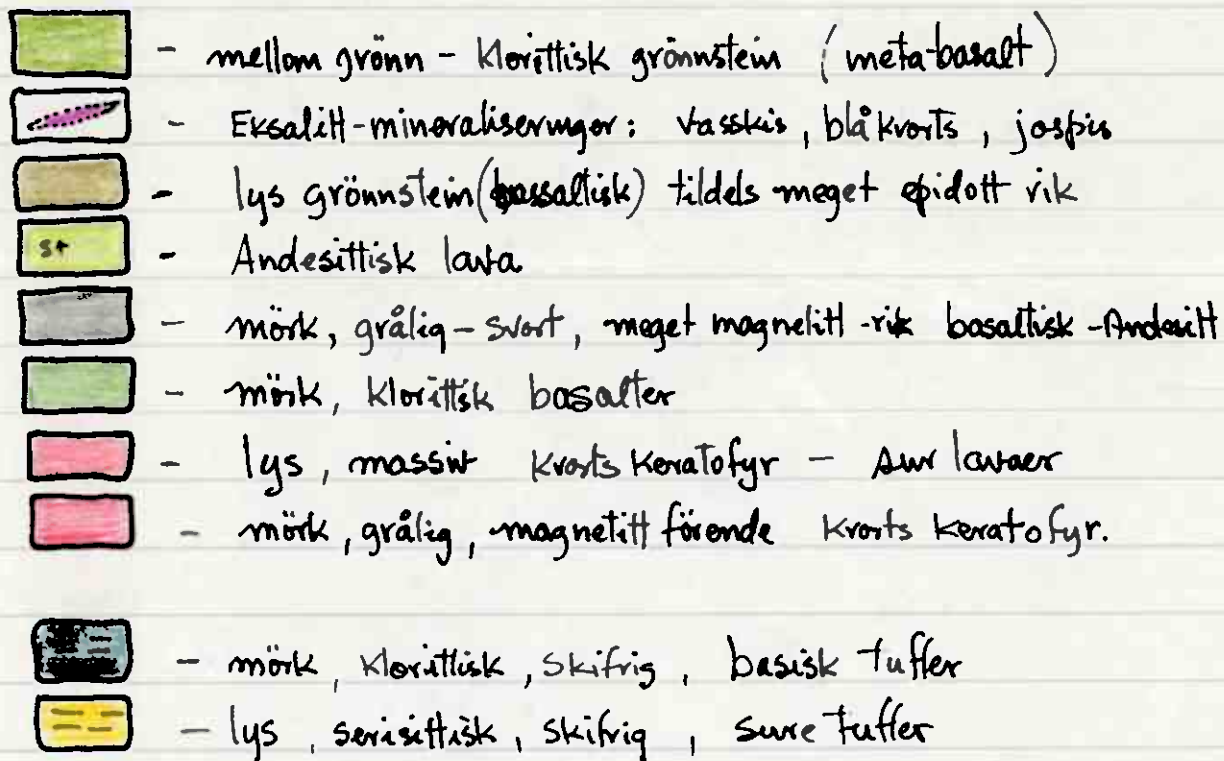 - mellom grönn - klorittisk grönnstein (meta-basalt)
- Eksalitt-mineraliseringer: vasskis, blåkvarts, jaspis
- lys grönnstein (bassaltisk) tildels meget epidott rik
st - Andesittisk lava
- mörk, grålig - svart, meget magnetitt-rik basaltisk-Andesitt
- mörk, klorittisk basalter
- lys, massiv kvarts keratofyr - sur lavaer
- mörk, grålig, magnetitt förende kvarts keratofyr.
- mörk, klorittisk, skifrig, basisk tuffer
- lys, serisittisk, skifrig, sure tuffer